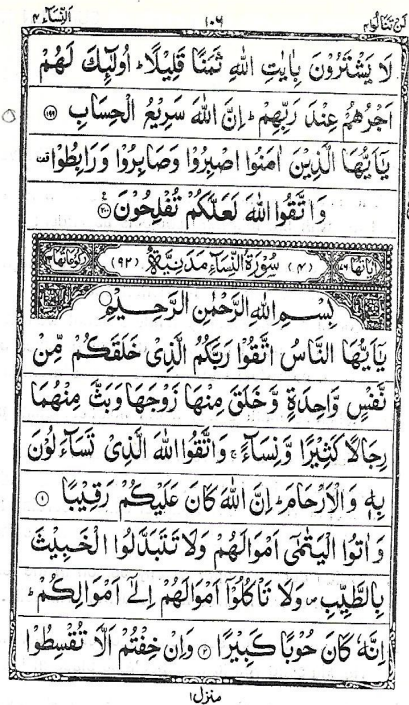 لن تنالوا ٤ ١٠٦ النسآء ٤
لَا يَشْتَرُوْنَ بِاٰيٰتِ اللهِ ثَمَنًا قَلِيْلًا ؕ اُولٰٓئِكَ لَهُمْ
اَجْرُهُمْ عِنْدَ رَبِّهِمْ ؕ اِنَّ اللهَ سَرِيْعُ الْحِسَابِ ﴿۱۹۹﴾
يٰۤاَيُّهَا الَّذِيْنَ اٰمَنُوا اصْبِرُوْا وَصَابِرُوْا وَرَابِطُوْا
وَاتَّقُوا اللهَ لَعَلَّكُمْ تُفْلِحُوْنَ ﴿۲۰۰﴾
اٰيَاتُهَا ١٧٦ (٤) سُوْرَةُ النِّسَآءِ مَدَنِيَّةٌ (٩٢) رُكُوْعَاتُهَا
بِسْمِ اللهِ الرَّحْمٰنِ الرَّحِيْمِ
يٰۤاَيُّهَا النَّاسُ اتَّقُوْا رَبَّكُمُ الَّذِيْ خَلَقَكُمْ مِّنْ
نَّفْسٍ وَّاحِدَةٍ وَّخَلَقَ مِنْهَا زَوْجَهَا وَبَثَّ مِنْهُمَا
رِجَالًا كَثِيْرًا وَّنِسَآءً ۚ وَاتَّقُوا اللهَ الَّذِيْ تَسَآءَلُوْنَ
بِهٖ وَالْاَرْحَامَ ؕ اِنَّ اللهَ كَانَ عَلَيْكُمْ رَقِيْبًا ﴿۱﴾
وَاٰتُوا الْيَتٰمٰۤى اَمْوَالَهُمْ وَلَا تَتَبَدَّلُوا الْخَبِيْثَ
بِالطَّيِّبِ ۪ وَلَا تَاْكُلُوْۤا اَمْوَالَهُمْ اِلٰۤى اَمْوَالِكُمْ ؕ
اِنَّهٗ كَانَ حُوْبًا كَبِيْرًا ﴿۲﴾ وَاِنْ خِفْتُمْ اَلَّا تُقْسِطُوْا
منزل ١